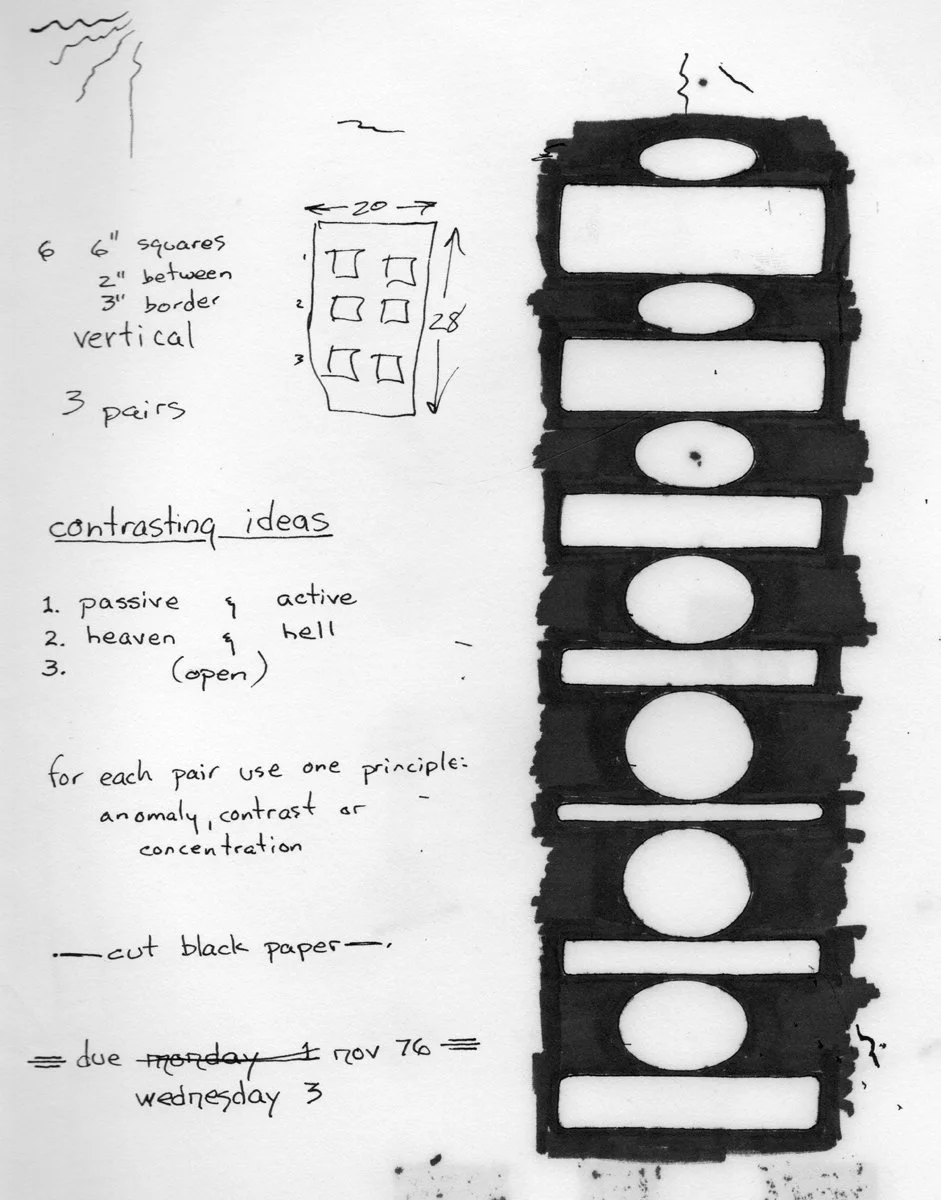 6 6" squares
2" between
3" border
vertical
3 pairs
20
1
2
3
28
contrasting ideas
1. passive & active
2. heaven & hell
3. (open)
for each pair use one principle:
anomaly, contrast or
concentration
— cut black paper —.
due ~~monday 1~~ nov 76
wednesday 3